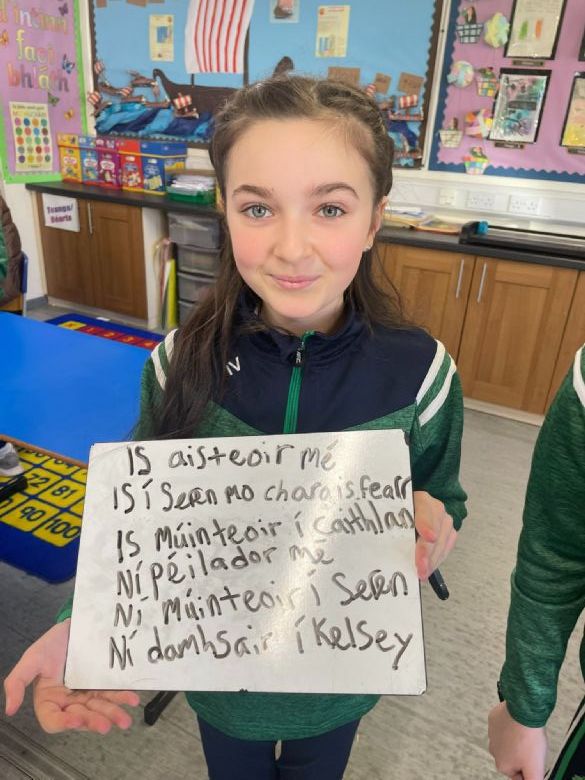 Is aisteoir mé
Is í Seren mo chara is fearr
Is múinteoir í Caithlan
Ní péilador mé
Ní múinteoir í Seren
Ní damhsair í Kelsey
72
81
90
100